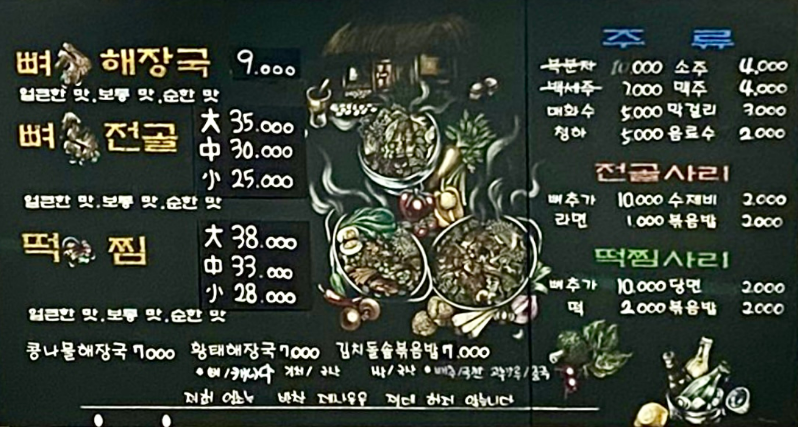 뼈 해장국 9.000
얼큰한 맛.보통 맛.순한 맛
뼈 전골 大 35.000
中 30.000
小 25.000
얼큰한 맛.보통 맛.순한 맛
떡 찜 大 38.000
中 33.000
小 28.000
얼큰한 맛.보통 맛.순한 맛
콩나물해장국 7000 황태해장국 7.000 김치돌솥볶음밥 7.000
주 류
복분자 10.000 소주 4,000
백세주 7.000 맥주 4,000
매화수 5,000 막걸리 3.000
청하 5,000 음료수 2.000
전골사리
뼈추가 10.000 수제비 2.000
라면 1.000 볶음밥 2000
떡찜사리
뼈추가 10.000 당면 2.000
떡 2000 볶음밥 2000